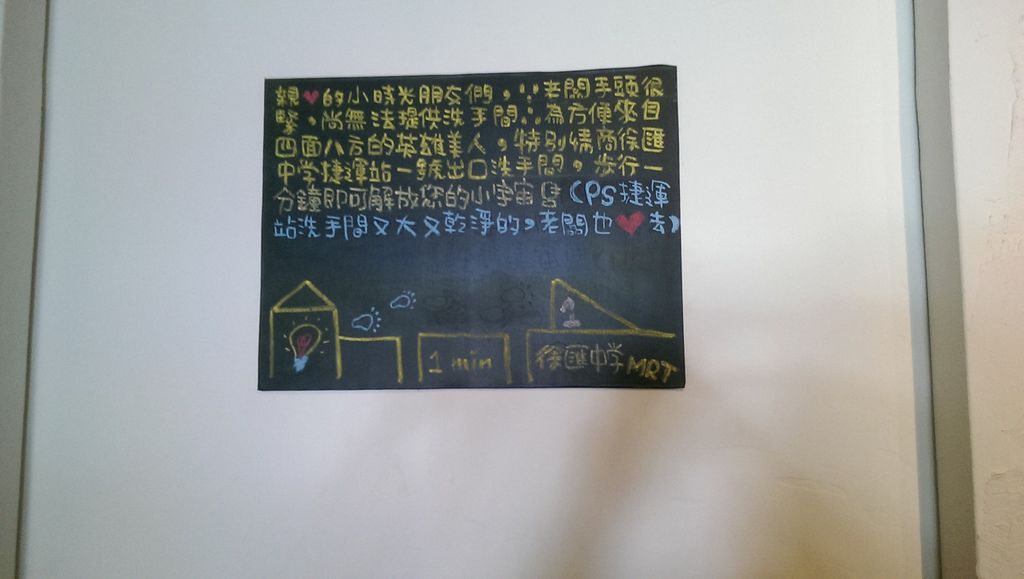 親❤的小時光朋友們，∵老闆手頭很
緊，尚無法提供洗手間∴為方便來自
四面八方的英雄美人，特別情商徐匯
中学捷運站一號出口洗手間，步行一
分鐘即可解放您的小宇宙!! (PS捷運
站洗手間又大又乾淨的，老闆也❤去)
1 min
徐匯中学MRT